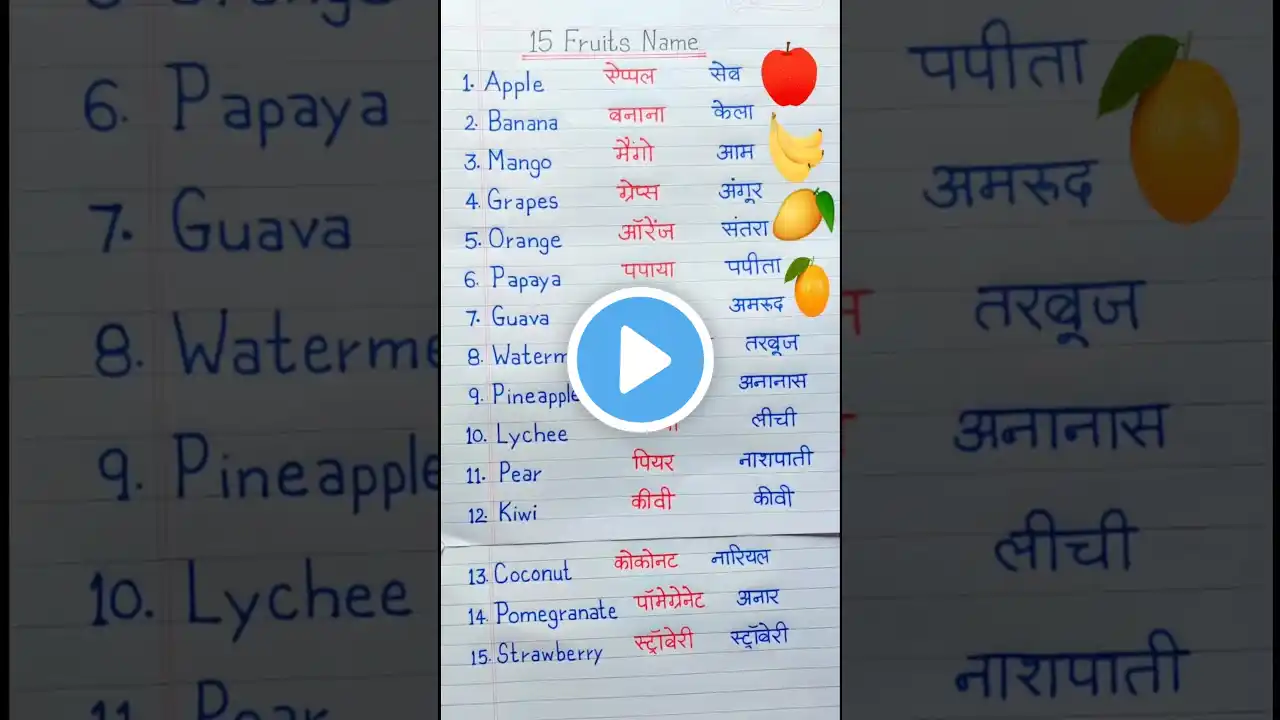 15 Fruits Name
1. Apple ऐप्पल सेब
2. Banana बनाना केला
3. Mango मैंगो आम
4. Grapes ग्रेप्स अंगूर
5. Orange ऑरेंज संतरा
6. Papaya पपाया पपीता
7. Guava अमरूद
8. Waterm तरबूज
9. Pineapple अनानास
10. Lychee लीची
11. Pear पियर नाशपाती
12. Kiwi कीवी कीवी
13. Coconut कोकोनट नारियल
14. Pomegranate पॉमेग्रेनेट अनार
15. Strawberry स्ट्रॉबेरी स्ट्रॉबेरी
6. Papaya पपीता
7. Guava अमरूद
8. Waterme तरबूज
9. Pineapple अनानास
10. Lychee लीची
11. Pear नाशपाती